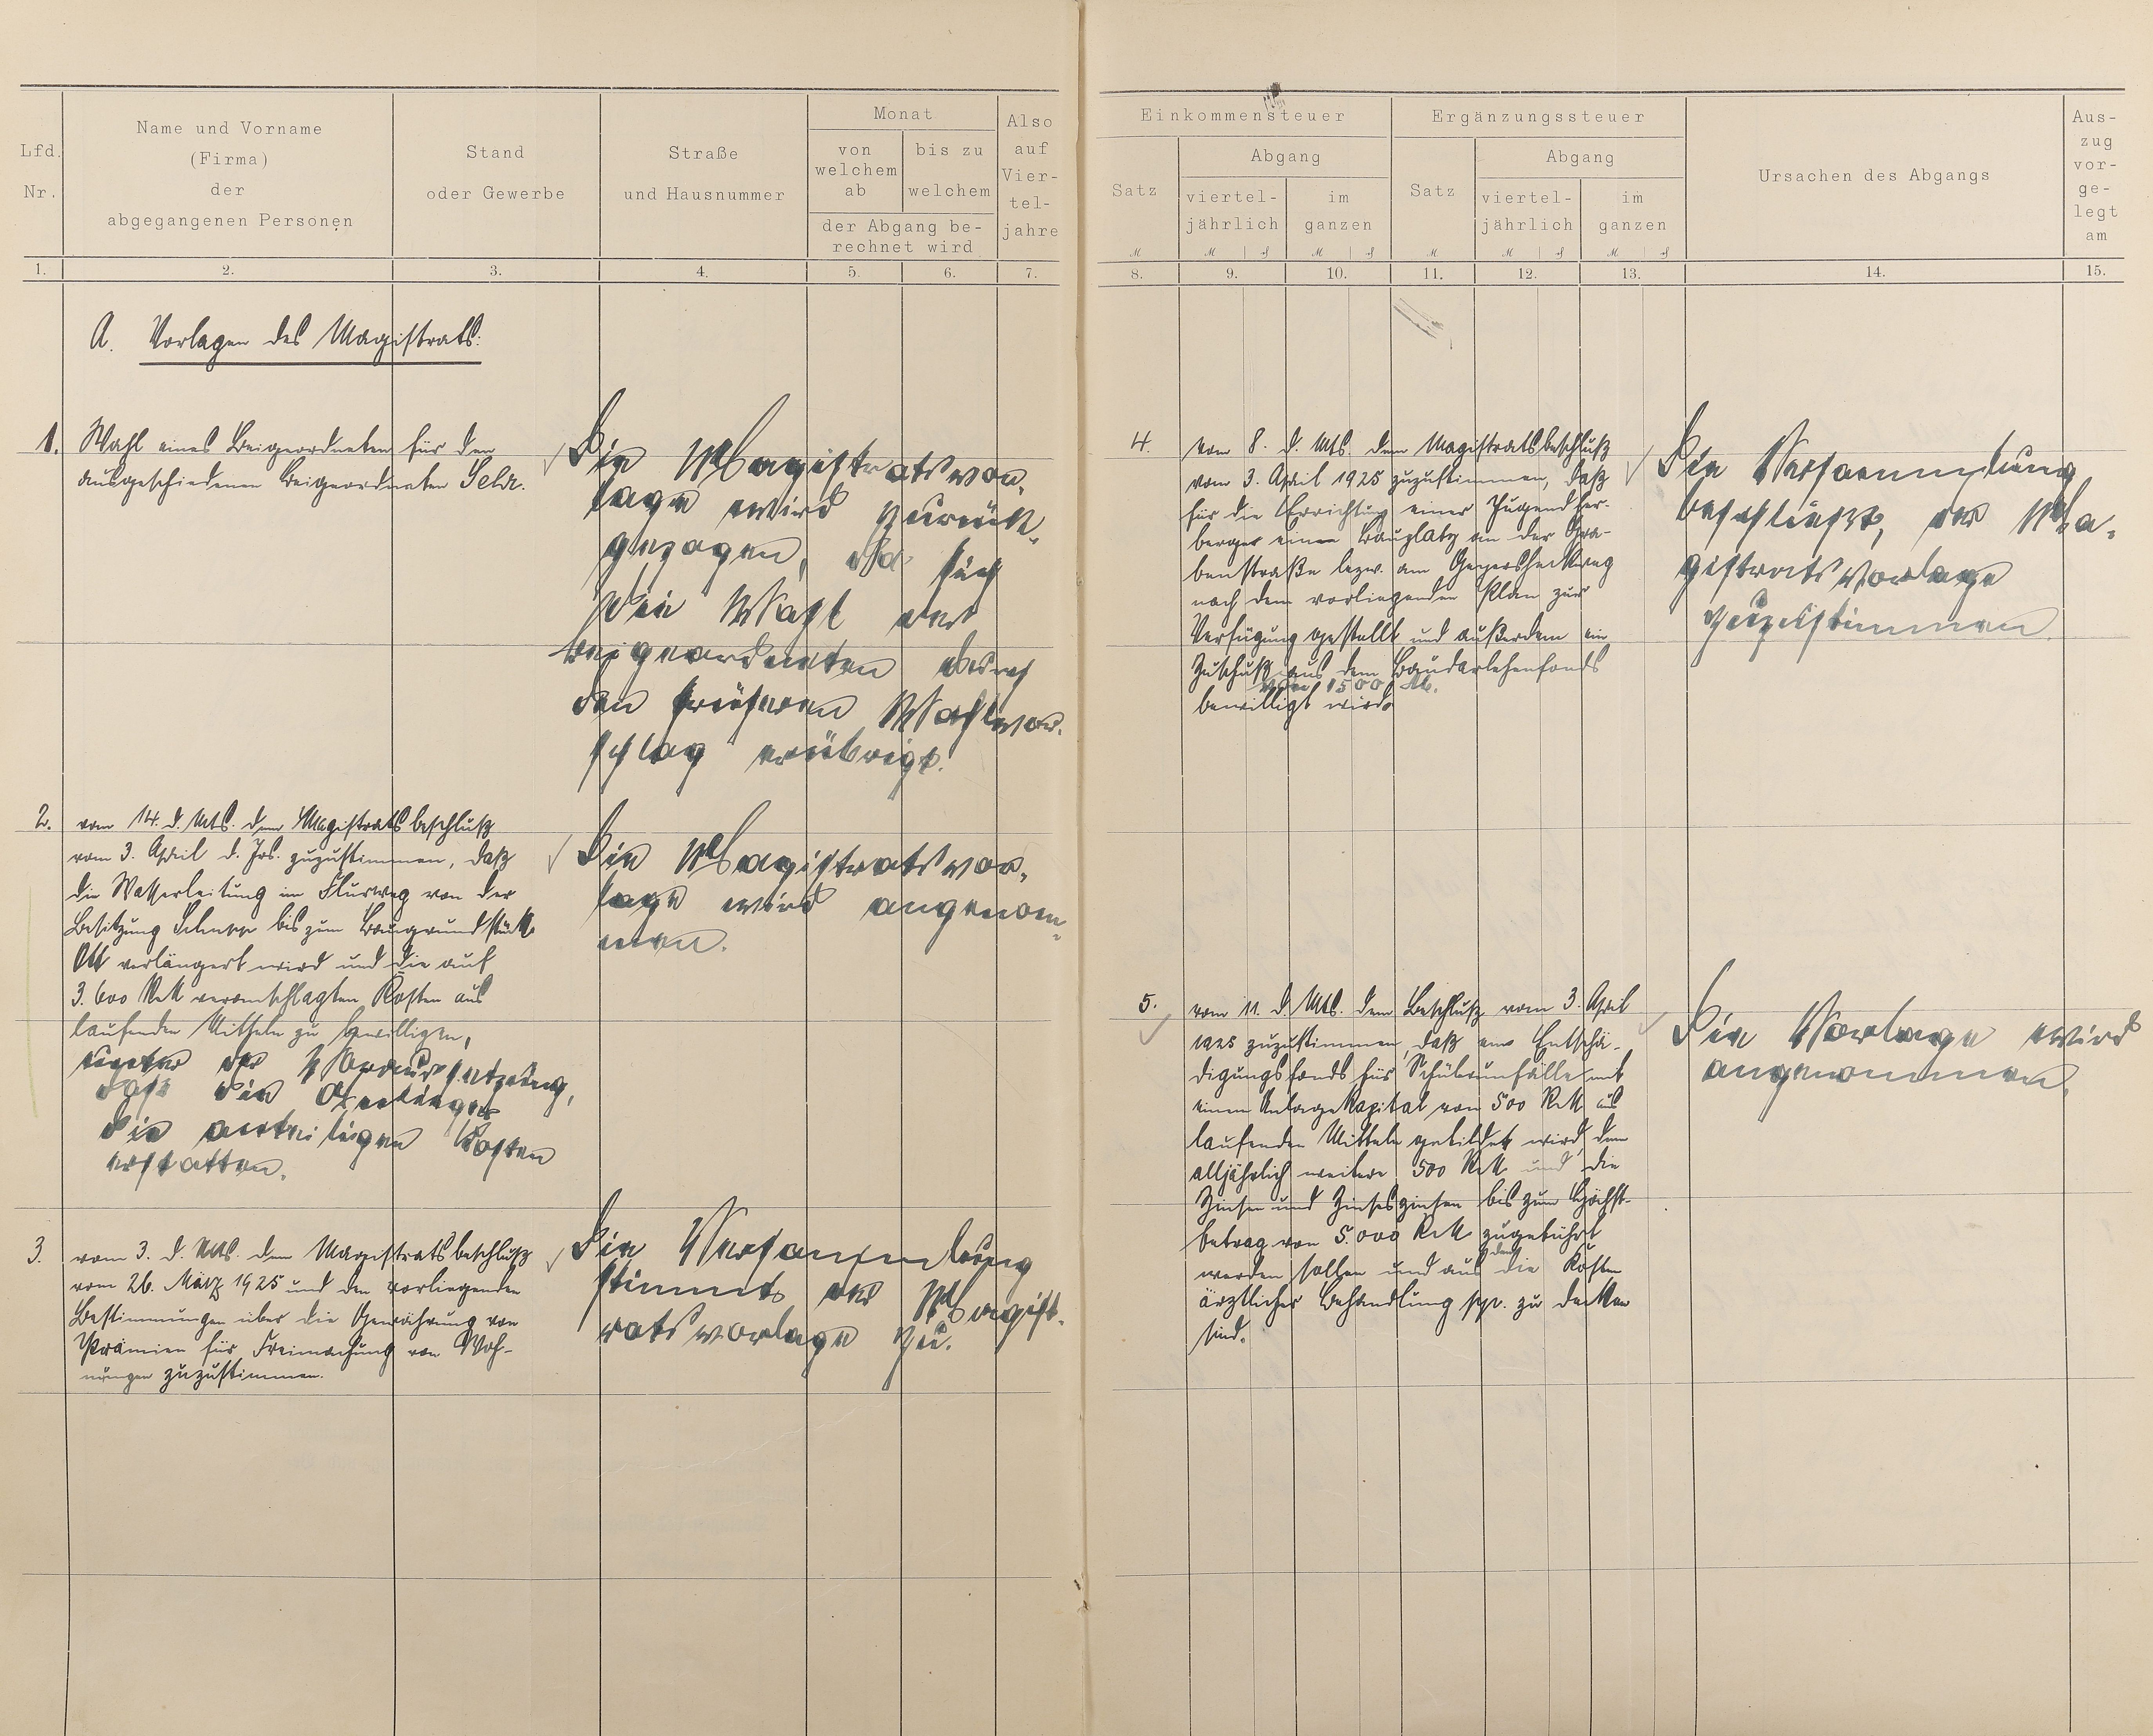 Lfd.
Nr.
Name und Vorname
(Firma)
der
abgegangenen Personen
Stand
oder Gewerbe
Straße
und Hausnummer
Monat
von
welchem
ab
bis zu
welchem
der Abgang be-
rechnet wird
Also
auf
Vier-
tel-
jahre
1.
2.
3.
4.
5.
6.
7.
A. Vorlagen des Magistrats:
1. Wahl eines Beigeordneten für den
ausgeschiedenen Beigeordneten
Die Magistratsvor-
lage wird zurück-
gezogen, da sich
die Wahl des
Beigeordneten durch
den früheren Wahlvor-
schlag erübrigt.
2. vom 14. d. Mts. dem Magistratsbeschluß
vom 3. April d. Js. zuzustimmen, daß
die Wasserleitung im Flurweg von der
Besitzung bis zum Baugrundstück
Ott verlängert wird und die auf
3.600 RM veranschlagten Kosten aus
laufenden Mitteln zu bewilligen,
unter der Voraussetzung,
daß die Anlieger
die anteiligen Kosten
erstatten.
Die Magistratsvor-
lage wird angenom-
men.
3. vom 3. d. Mts. dem Magistratsbeschluß
vom 26. März 1925 und den vorliegenden
Bestimmungen über die Gewährung von
Prämien für Freimachung von Woh-
nungen zuzustimmen.
Die Versammlung
stimmt der Magist-
ratsvorlage zu.
Einkommensteuer
Satz
Abgang
viertel-
jährlich
im
ganzen
Ergänzungssteuer
Satz
Abgang
viertel-
jährlich
im
ganzen
Ursachen des Abgangs
Aus-
zug
vor-
ge-
legt
am
8.
9.
10.
11.
12.
13.
14.
15.
4. vom 8. d. Mts. dem Magistratsbeschluß
vom 3. April 1925 zuzustimmen, daß
für die Errichtung einer Jugendher-
berge einen Bauplatz an der Gra-
benstraße bezw. am
nach dem vorliegenden Plan zur
Verfügung gestellt und außerdem ein
Zuschuß aus dem Baudarlehenfonds
von 1500 M.
bewilligt wird.
Die Versammlung
beschließt, der Ma-
gistratsvorlage
zuzustimmen.
5. vom 11. d. Mts. dem Beschluß vom 3. April
1925 zuzustimmen, daß ein Entschä-
digungsfonds für Schülerunfälle mit
einem Anlagekapital von 500 RM aus
laufenden Mitteln gebildet wird, dem
alljährlich weitere 500 RM und die
Zinsen und Zinseszinsen bis zum Höchst-
betrag von 5.000 RM zugeführt
werden sollen und aus dem die Kosten
ärztlicher Behandlung pp. zu decken
sind.
Die Vorlage wird
angenommen.